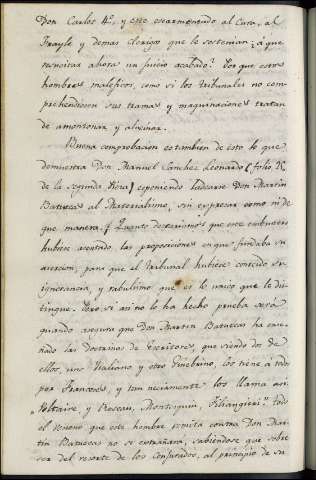 Don Carlos 4º, y este escarmentando al Cura, al
Frayle y demas clerigos que le sostenian: á que
resucitar ahora un juicio acabado? Porque estos
hombres maleficos, como si los tribunales no com-
prehendiesen sus tramas y maquinaciones tratan
de amontonar y alucinar.
Buena comprobacion es tambien de esto lo que
demuestra Don Manuel Sanchez Leonardo (folio
de la segunda Pieza) esponiendo ladearse Don Martin
Batuecas al Materialismo, sin expresar como ni de
que manera. ¡Quanto que este embustero
hubiese asentado las proposiciones en que fundaba su
asercion, para que el Tribunal hubiese conocido su
ignorancia, y rabulismo que es lo unico que le dis-
tingue. Pero si asi no lo ha hecho prueba será
quando asegura que Don Martin Batuecas ha ense-
ñado las doctrinas de Escritores, que siendo dos de
ellos, uno Italiano y otro Ginebrino, los tiene á todos
por Franceses, y tan neciamente los llama asi.
Voltaire, y Roseau, Montesquiu, Filangieri. Todo
el veneno que este hombre vomita contra Don Mar-
tin Batuecas no se estrañará, sabiendose que sobre
ser del resorte de los Conjurados, al principio de su